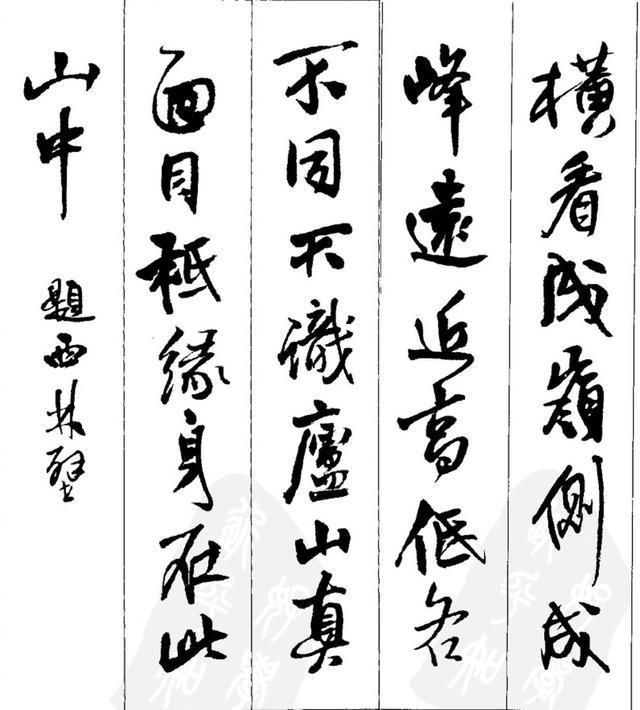 橫看成嶺側成
峰遠近高低各
不同不識廬山真
面目祗緣身在此
山中 題西林壁